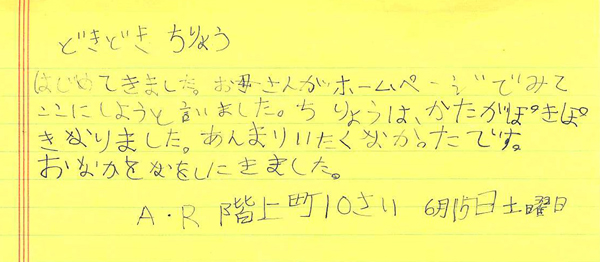 どきどき ちりょう
はじめてきました。お母さんがホームページでみて
ここにしようと言いました。ちりょうは、かたがぽきぽ
きなりました。あんまりいたくなかったです。
おなかをなをしにきました。
A・R 階上町10さい 6月15日土曜日